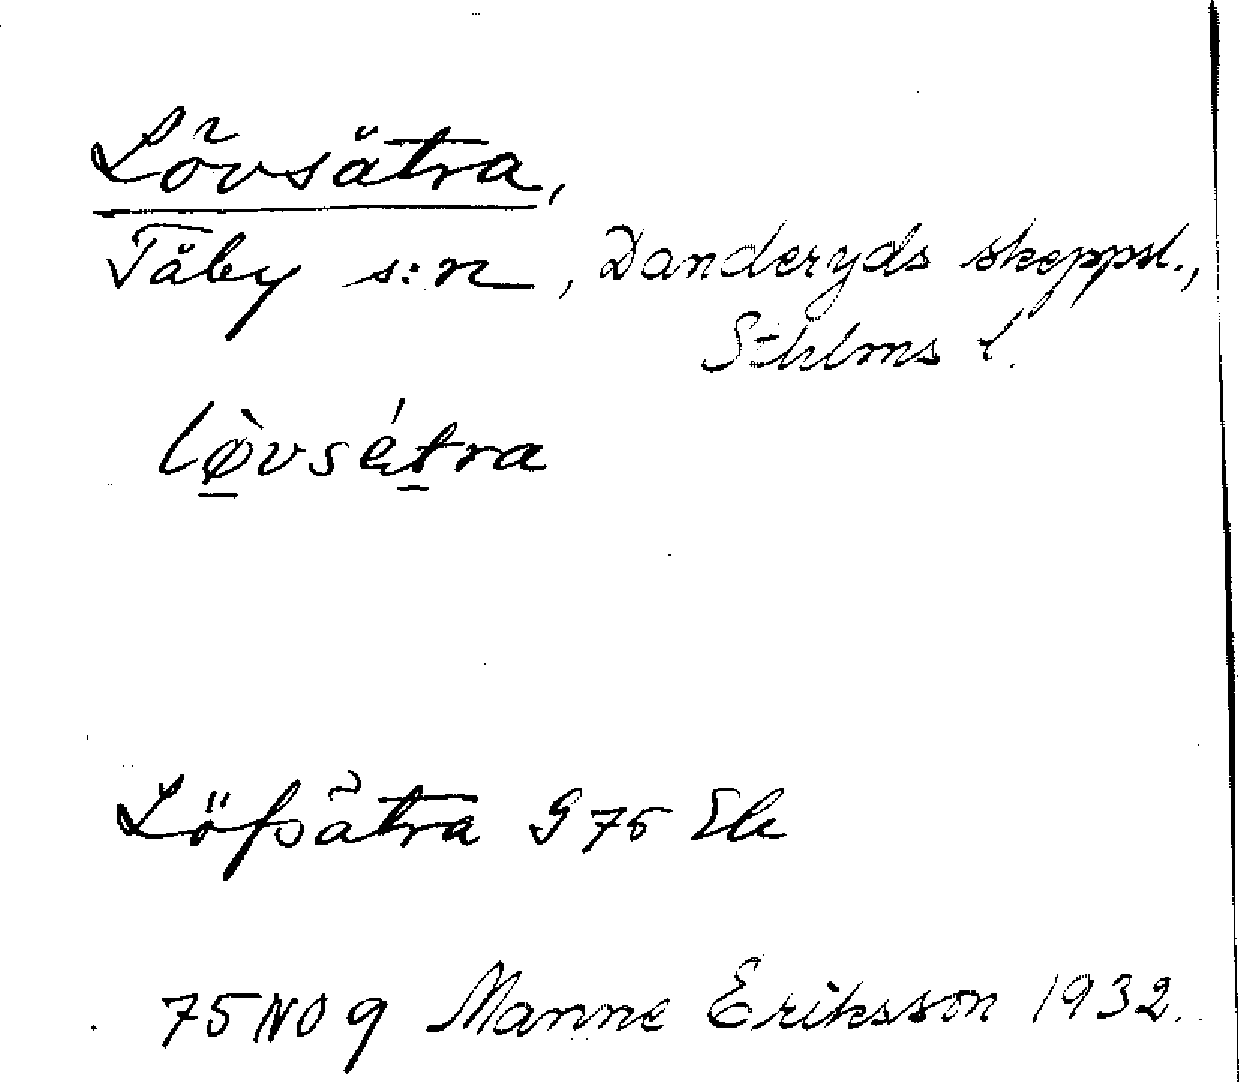 Lövsätra,
Täby s:n, Danderyds skeppsl.,
Sthlms l.
lø̀vsétra
Löfsätra G 75 Ek
75 NO 9 Manne Eriksson 1932.